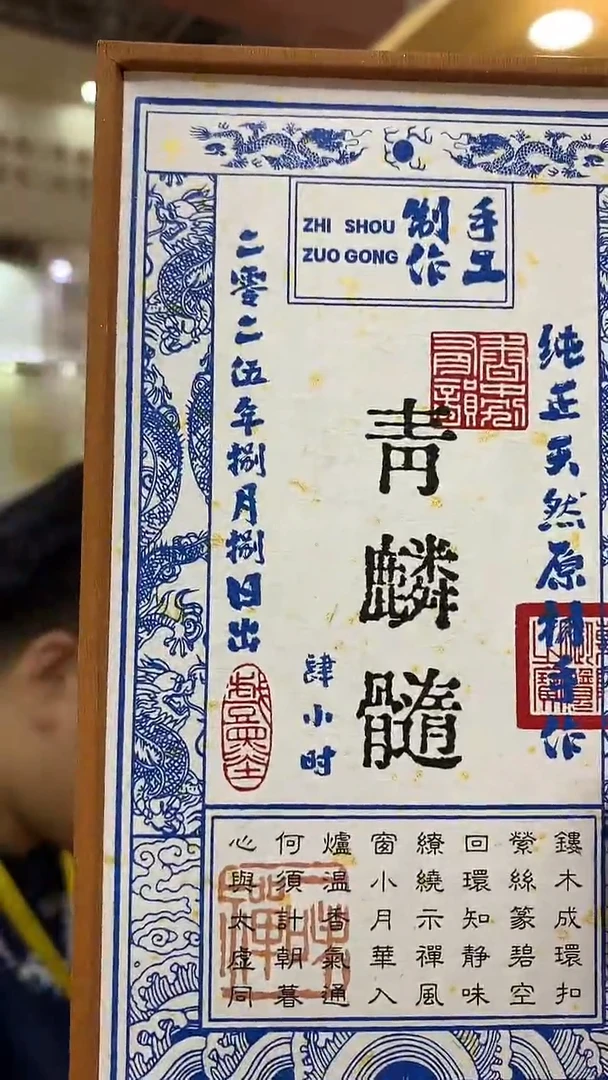 手工
制作
ZHI SHOU
ZUO GONG
纯正天然原材手作
青麟髓
肆小时
二零二伍年捌月捌日出
鏤木成環扣
縈絲篆碧空
回環知静味
繚繞示禪風
窗小月華入
爐溫香氣通
何須計朝暮
心與太虛同